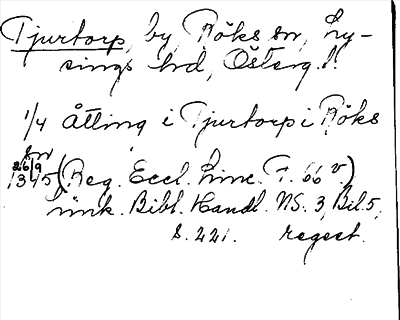 Tjurtorp, by, Röks sn, Ly-
sings hd, Östergl.
1/4 åtting i Tjurtorp i Röks
sn
26/9
1345 (Reg. Eccl. Linc. F. 66 v)
Link. Bibl. Handl. NS. 3, Bil. 5,
s. 221. regest.